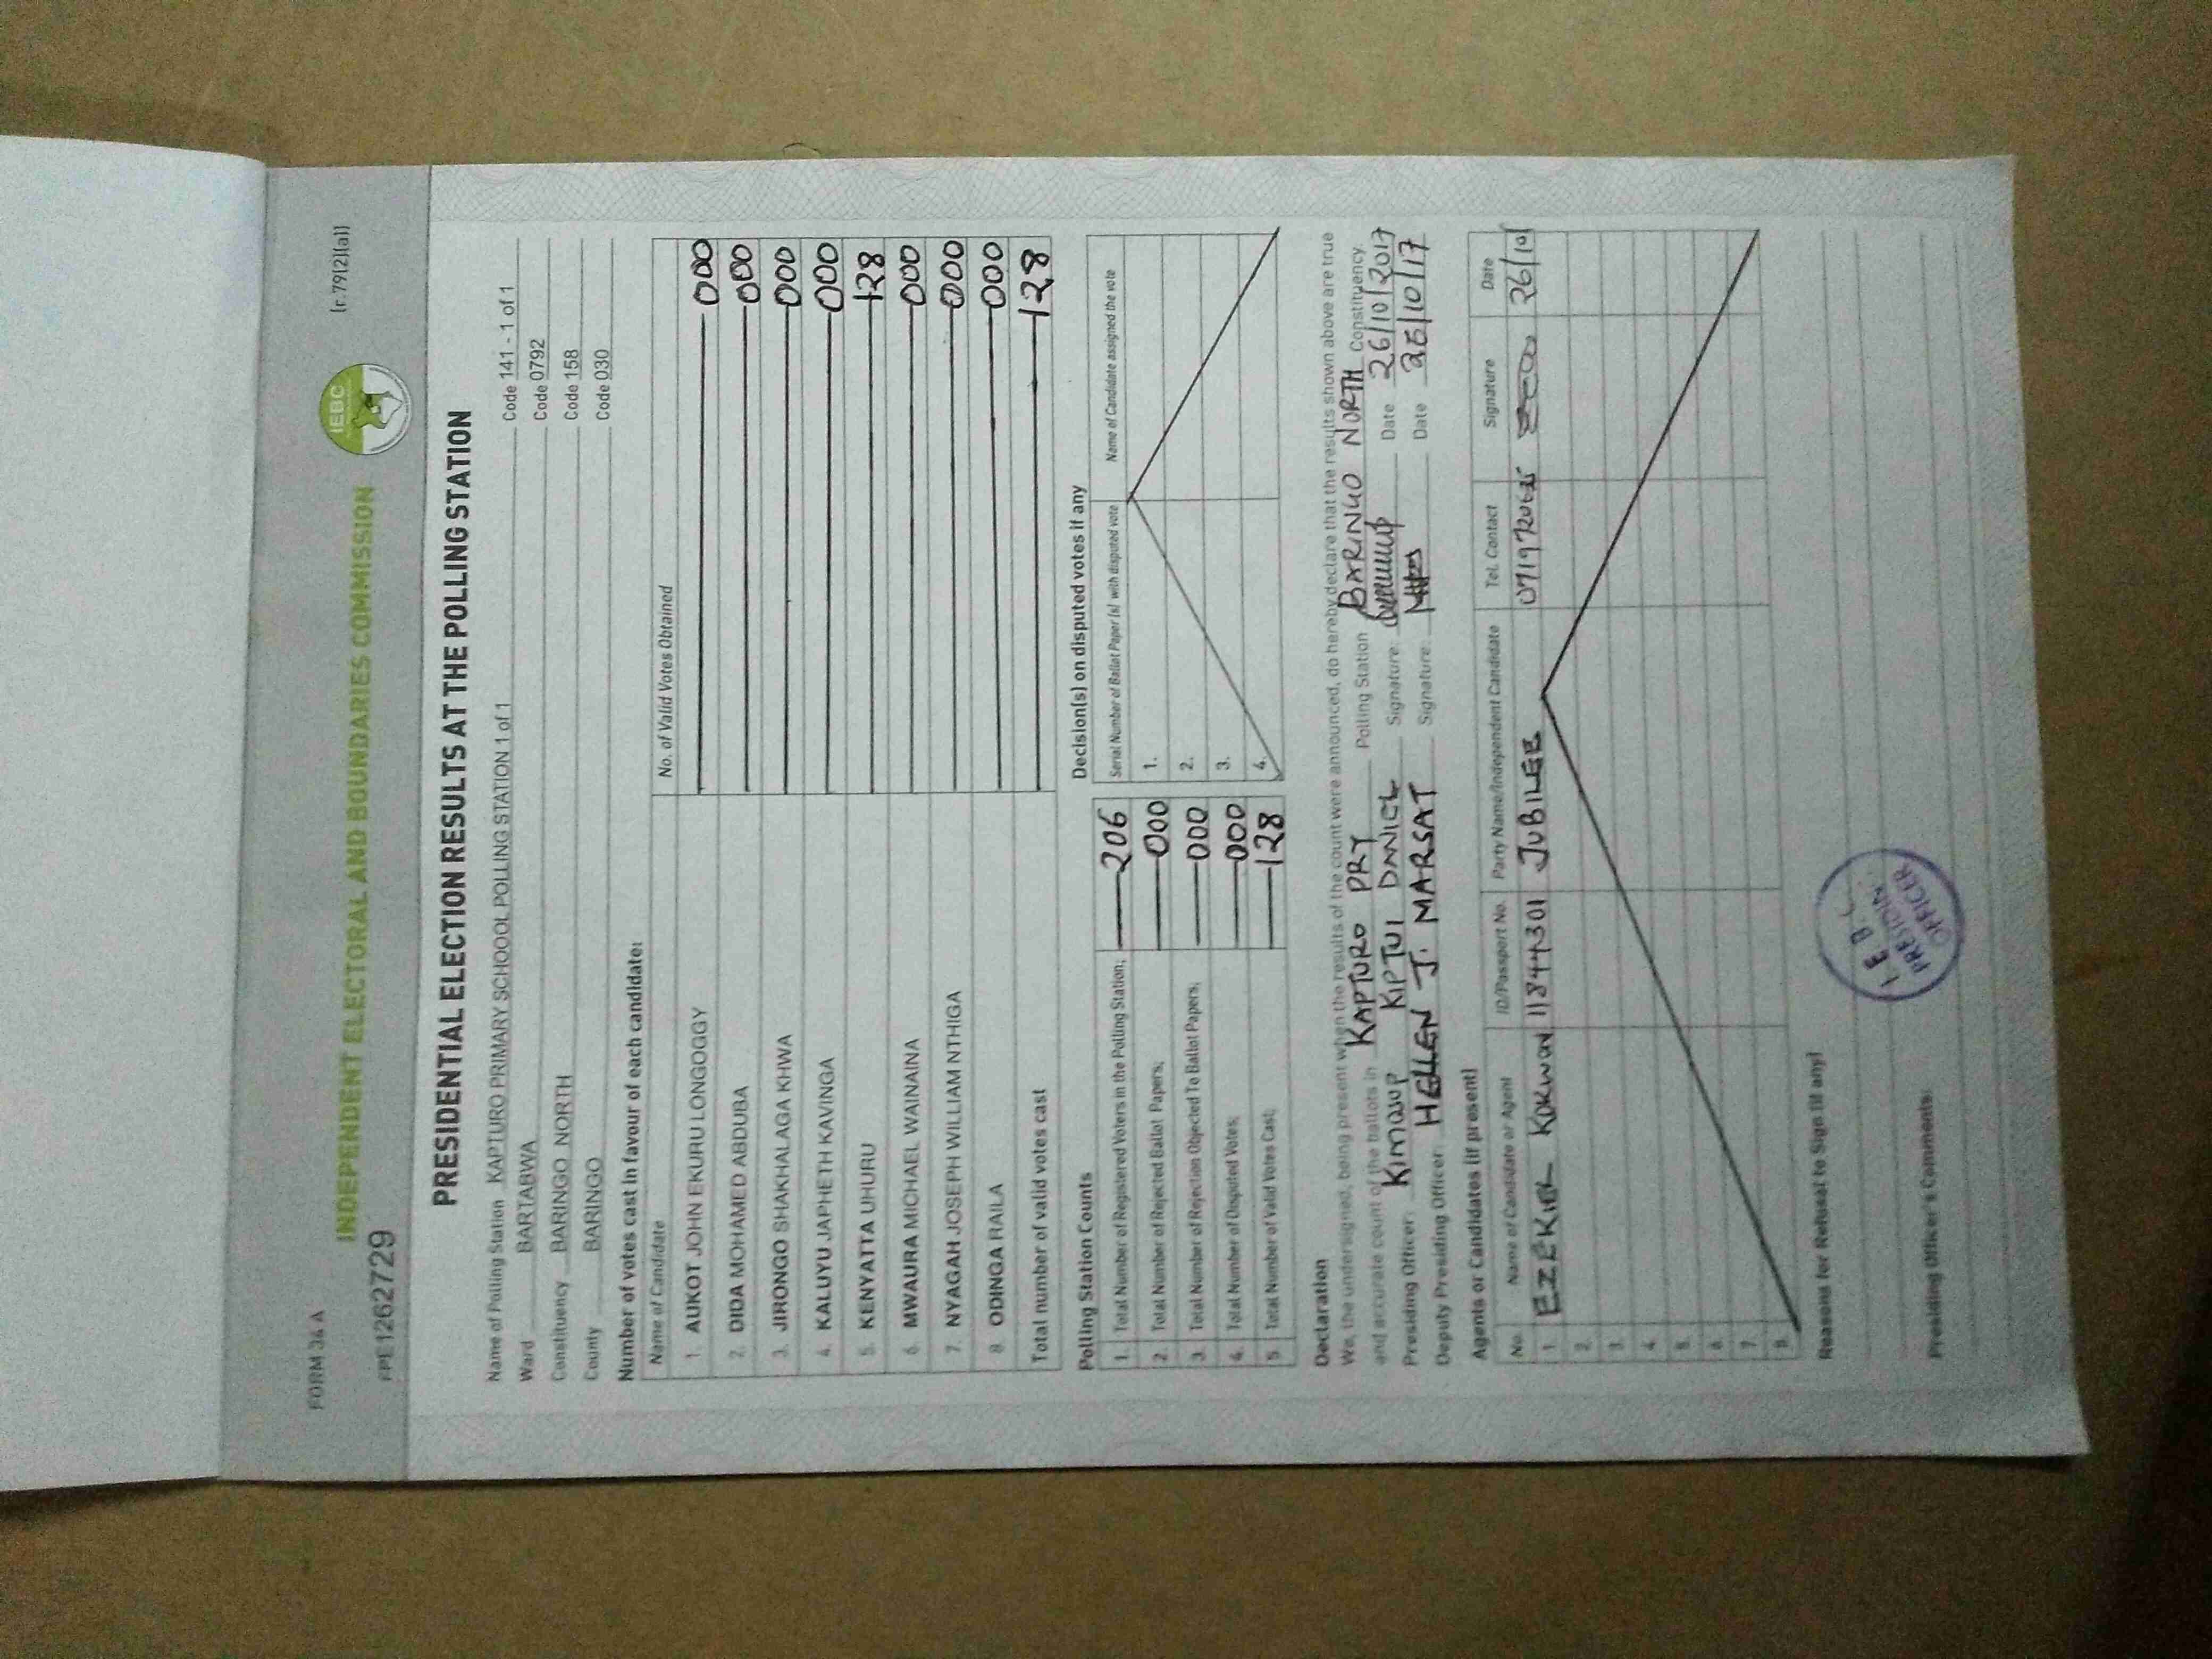 FORM 34 A
(r.79(2)(a))
INDEPENDENT ELECTORAL AND BOUNDARIES COMMISSION
IEBC
PPE1262729
PRESIDENTIAL ELECTION RESULTS AT THE POLLING STATION
Name of Polling Station KAPTURO PRIMARY SCHOOL POLLING STATION 1 of 1 Code 141 - 1 of 1
Ward BARTABWA Code 0792
Constituency BARINGO NORTH Code 158
County BARINGO Code 030
Number of votes cast in favour of each candidate:
Name of Candidate No. of Valid Votes Obtained
1. AUKOT JOHN EKURU LONGOGGY 000
2. DIDA MOHAMED ABDUBA 000
3. JIRONGO SHAKHALAGA KHWA 000
4. KALUYU JAPHETH KAVINGA 000
5. KENYATTA UHURU 128
6. MWAURA MICHAEL WAINAINA 000
7. NYAGAH JOSEPH WILLIAM NTHIGA 000
8. ODINGA RAILA 000
Total number of valid votes cast 128
Polling Station Counts
1. Total Number of Registered Voters in the Polling Station; 206
2. Total Number of Rejected Ballot Papers; 000
3. Total Number of Rejection Objected To Ballot Papers; 000
4. Total Number of Disputed Votes; 000
5. Total Number of Valid Votes Cast; 128
Decision(s) on disputed votes if any
Serial Number of Ballot Paper (s) with disputed vote Name of Candidate assigned the vote
1.
2.
3.
4.
Declaration
We, the undersigned, being present when the results of the count were announced, do hereby declare that the results shown above are true
and accurate count of the ballots in KAPTURO PRY Polling Station BARINGO NORTH Constituency.
Presiding Officer: KIPTUI DANIEL Signature: Date 26/10/2017
Deputy Presiding Officer: HELLEN J. MARSAT Signature: Date 26/10/17
Agents or Candidates (if present)
No. Name of Candidate or Agent ID/Passport No. Party Name/Independent Candidate Tel. Contact Signature Date
1. EZEKIEL KOKWON 11844301 JUBILEE 26/10/
2.
3.
4.
5.
6.
7.
8.
Reasons for Refusal to Sign (if any)
Presiding Officer's Comments:
I.E.B.C
PRESIDING
OFFICER